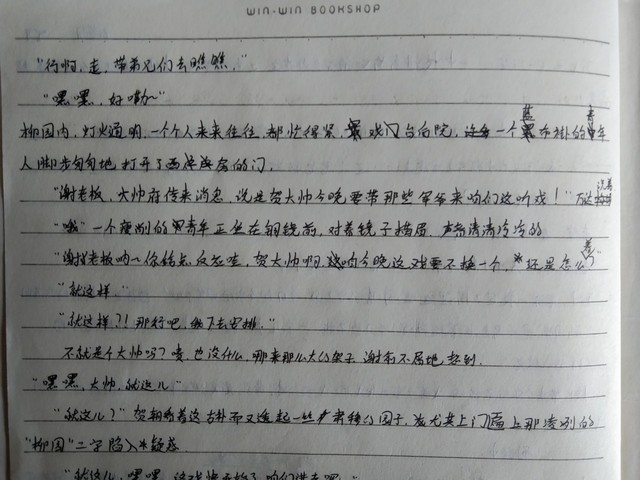 WIN-WIN BOOKSHOP
"行啊，走，带弟兄们去瞧瞧，"
"嘿嘿，好嘞~"
柳园内，灯火通明，一个个人来来往往，都忙得紧，戏台后院，一个蓝布褂的青年
人脚步匆匆地打开了西房的门，
"谢老板，大帅府传来消息，说是贺大帅今晚要带那些军爷来咱们这听戏！"
"哦"一个瘦削的青年正坐在铜镜前，对着镜子描眉，声音清清冷冷的
"谢老板哟~你给点反应哇，贺大帅啊，咱今晚这戏要不换一个，还是怎么着"
"就这样"
"就这样?！那行吧，我下去安排，"
不就是个大帅吗？唉，也没什么，哪来那么大的架子，谢不屑地想到，
"嘿嘿，大帅，就这儿"
"就这儿？"贺看着这古朴而又透起一丝的园子，尤其上门匾上那凌冽的
"柳园"二字陷入疑惑，
"就这儿，嘿嘿，这戏快开始了咱们进去吧"